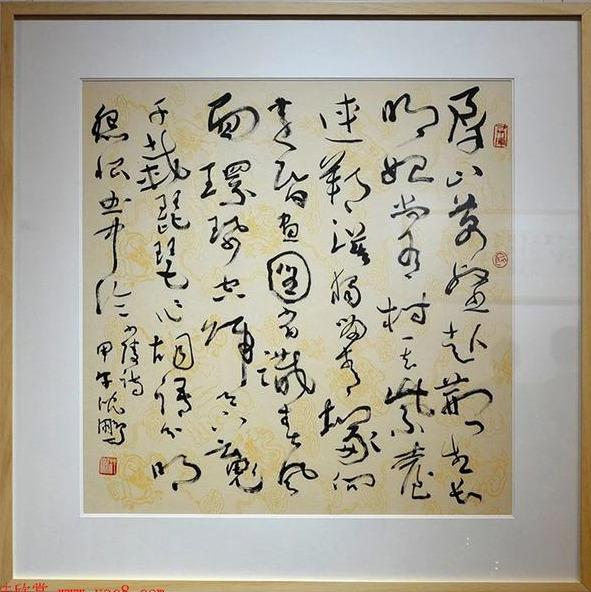 群山萬壑赴荆門生長
明妃尚有村一去紫臺
連朔漠獨留青冢向
黄昏畫圖省識春風
面環珮空歸月夜魂
千載琵琶作胡語分明
怨恨曲中論 少陵詩
甲午沈鹏
法欣赏 www.yac8.com